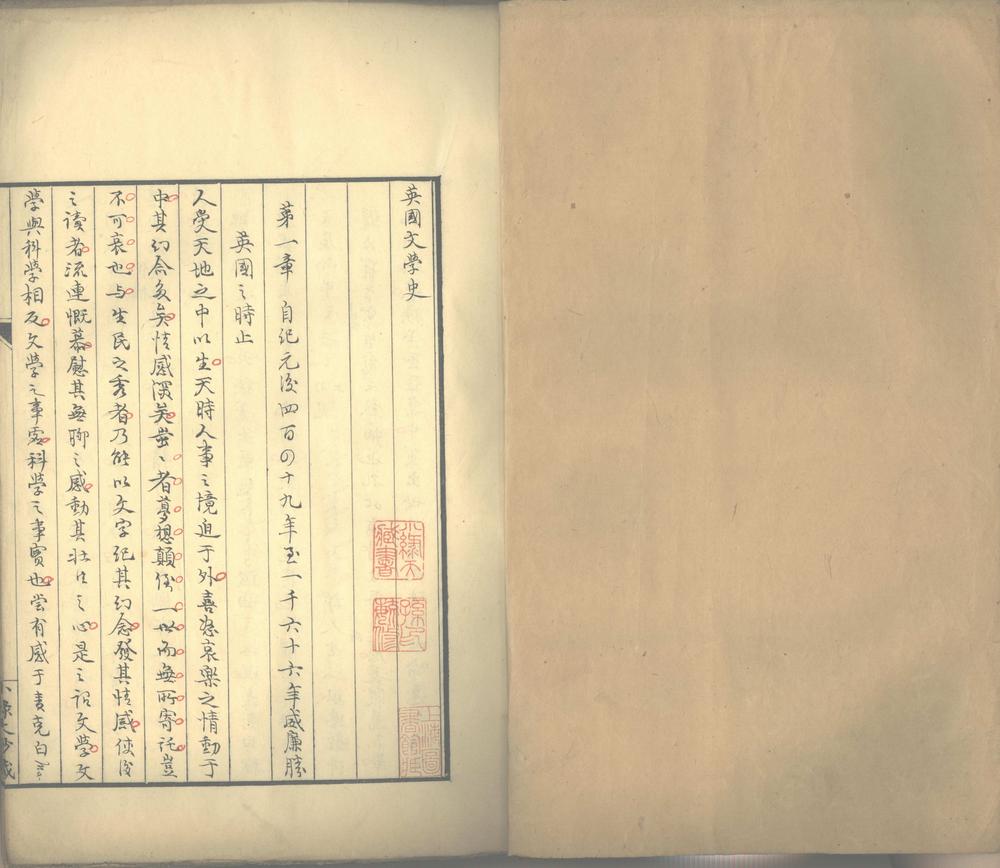 英國文學史
第一章 自紀元後四百四十九年至一千六十六年威廉勝
英國之時止
人受天地之中以生天時人事之境迫于外喜怒哀樂之情動于
中其幻念多矣情感深矣蚩〻者夢想顛倒一世而無所寄託豈
不可哀也与生民之秀者乃能以文字紀其幻念發其情感使後
之讀者流連慨慕慰其無聊之感動其壯往之心是之謂文學文
學與科學相反文學之事虛科學之事實也嘗有感于麦克白
小綠天
藏書
孫氏
上海圖
書館藏